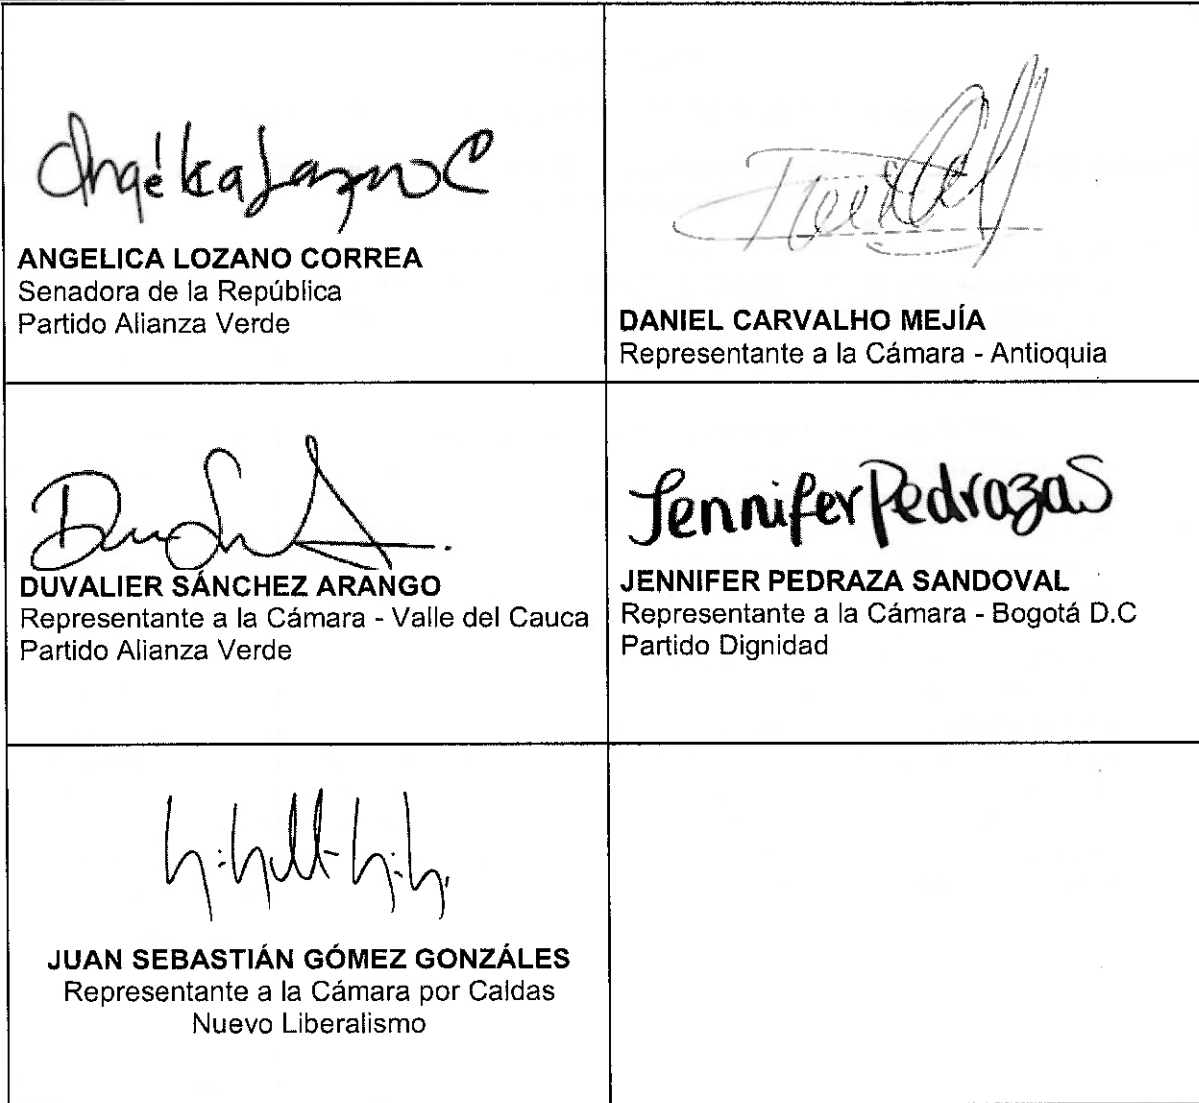 Angélica Lozano C
ANGELICA LOZANO CORREA
Senadora de la República
Partido Alianza Verde
DANIEL CARVALHO MEJÍA
Representante a la Cámara - Antioquia
DUVALIER SÁNCHEZ ARANGO
Representante a la Cámara - Valle del Cauca
Partido Alianza Verde
Jennifer Pedraza S
JENNIFER PEDRAZA SANDOVAL
Representante a la Cámara - Bogotá D.C
Partido Dignidad
JUAN SEBASTIÁN GÓMEZ GONZÁLES
Representante a la Cámara por Caldas
Nuevo Liberalismo